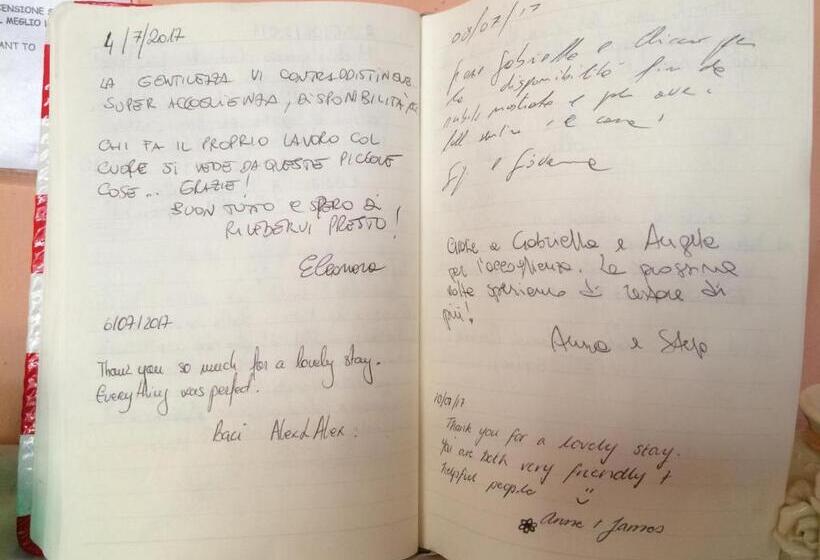 CENSIONE
MEGLIO
ANT TO
4/7/2017
LA GENTILEZZA VI CONTRADDISTINGUE
SUPER ACCOGLIENZA, DISPONIBILITÀ
CHI FA IL PROPRIO LAVORO COL
CUORE SI VEDE DA QUESTE PICCOLE
COSE... GRAZIE!
BUON TUTTO E SPERO DI
RIVEDERVI PRESTO!
Eleonora
6/07/2017
Thank you so much for a lovely stay.
Everything was perfect.
Baci Alex & Alex.
08/07/17
Gabriella e
la disponibilità
e Giovanna
Grazie a Gabriella e Angela
per l'accoglienza. La prossima
volta speriamo di restare di
più!
Anna e Step
10/07/17
Thank you for a lovely stay.
You are both very friendly +
helpful people
Anne + James